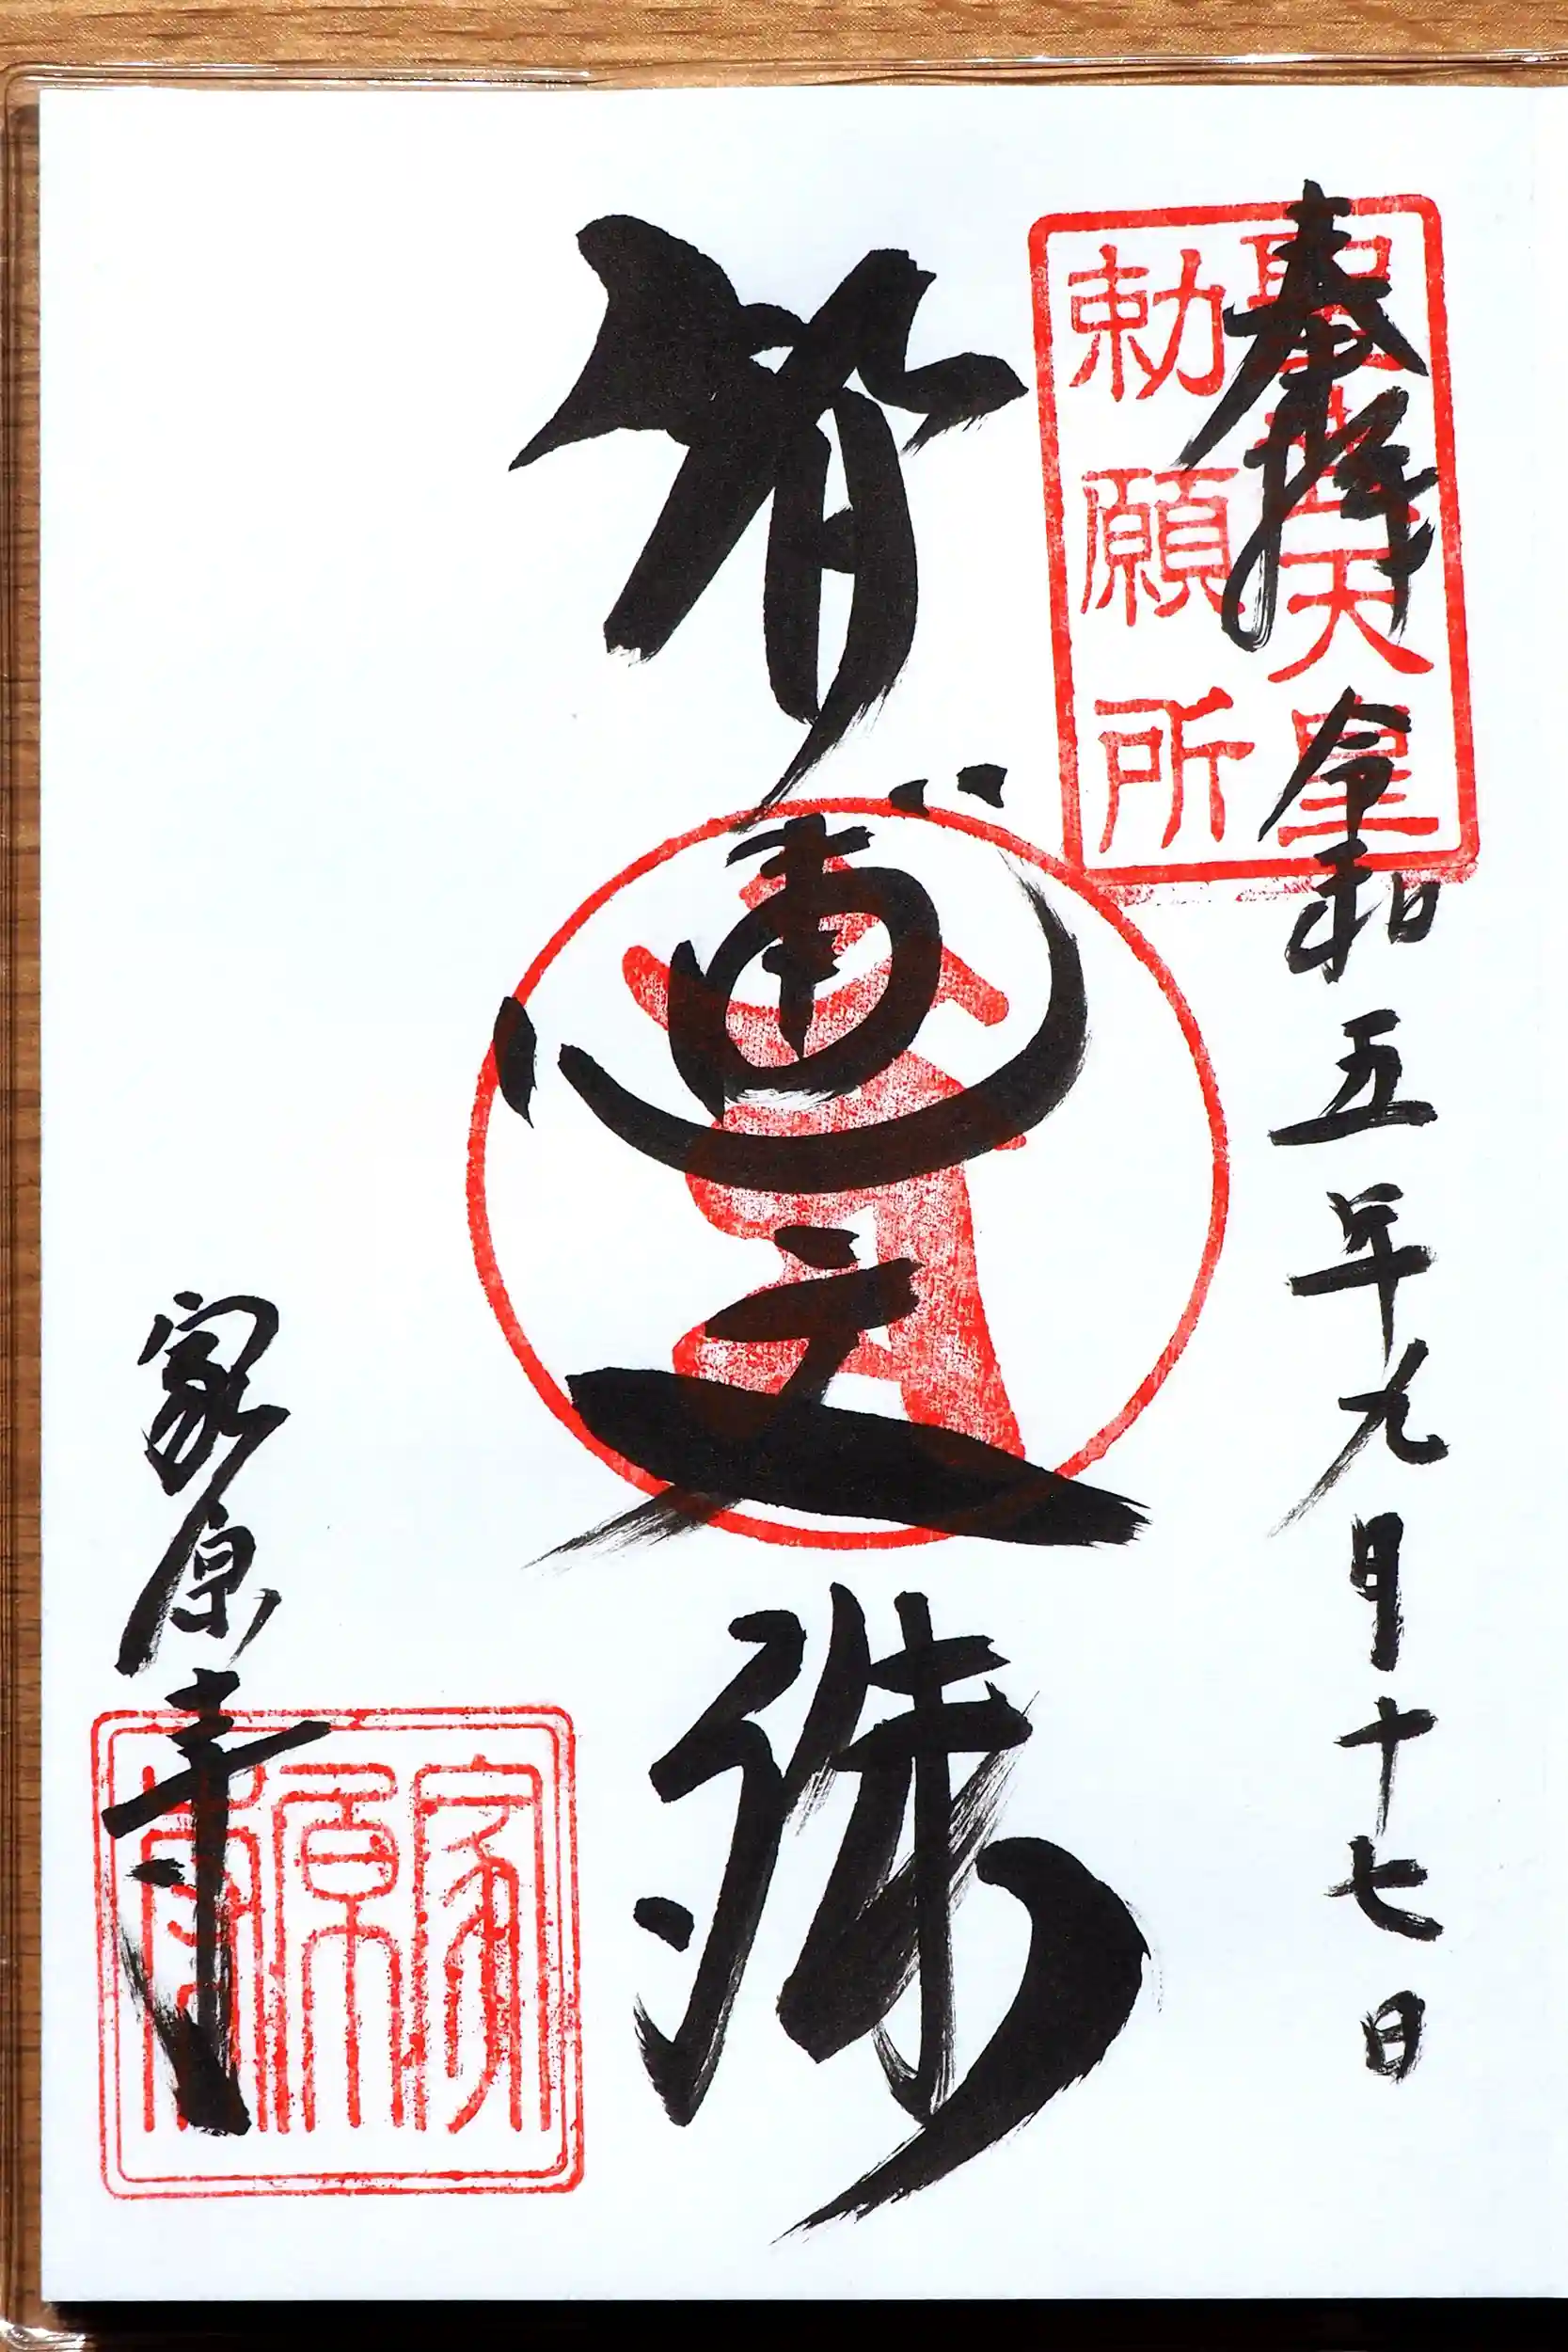 奉拝
令和五年九月十七日
聖武天皇
勅願所
智恵文殊
家原寺
家原